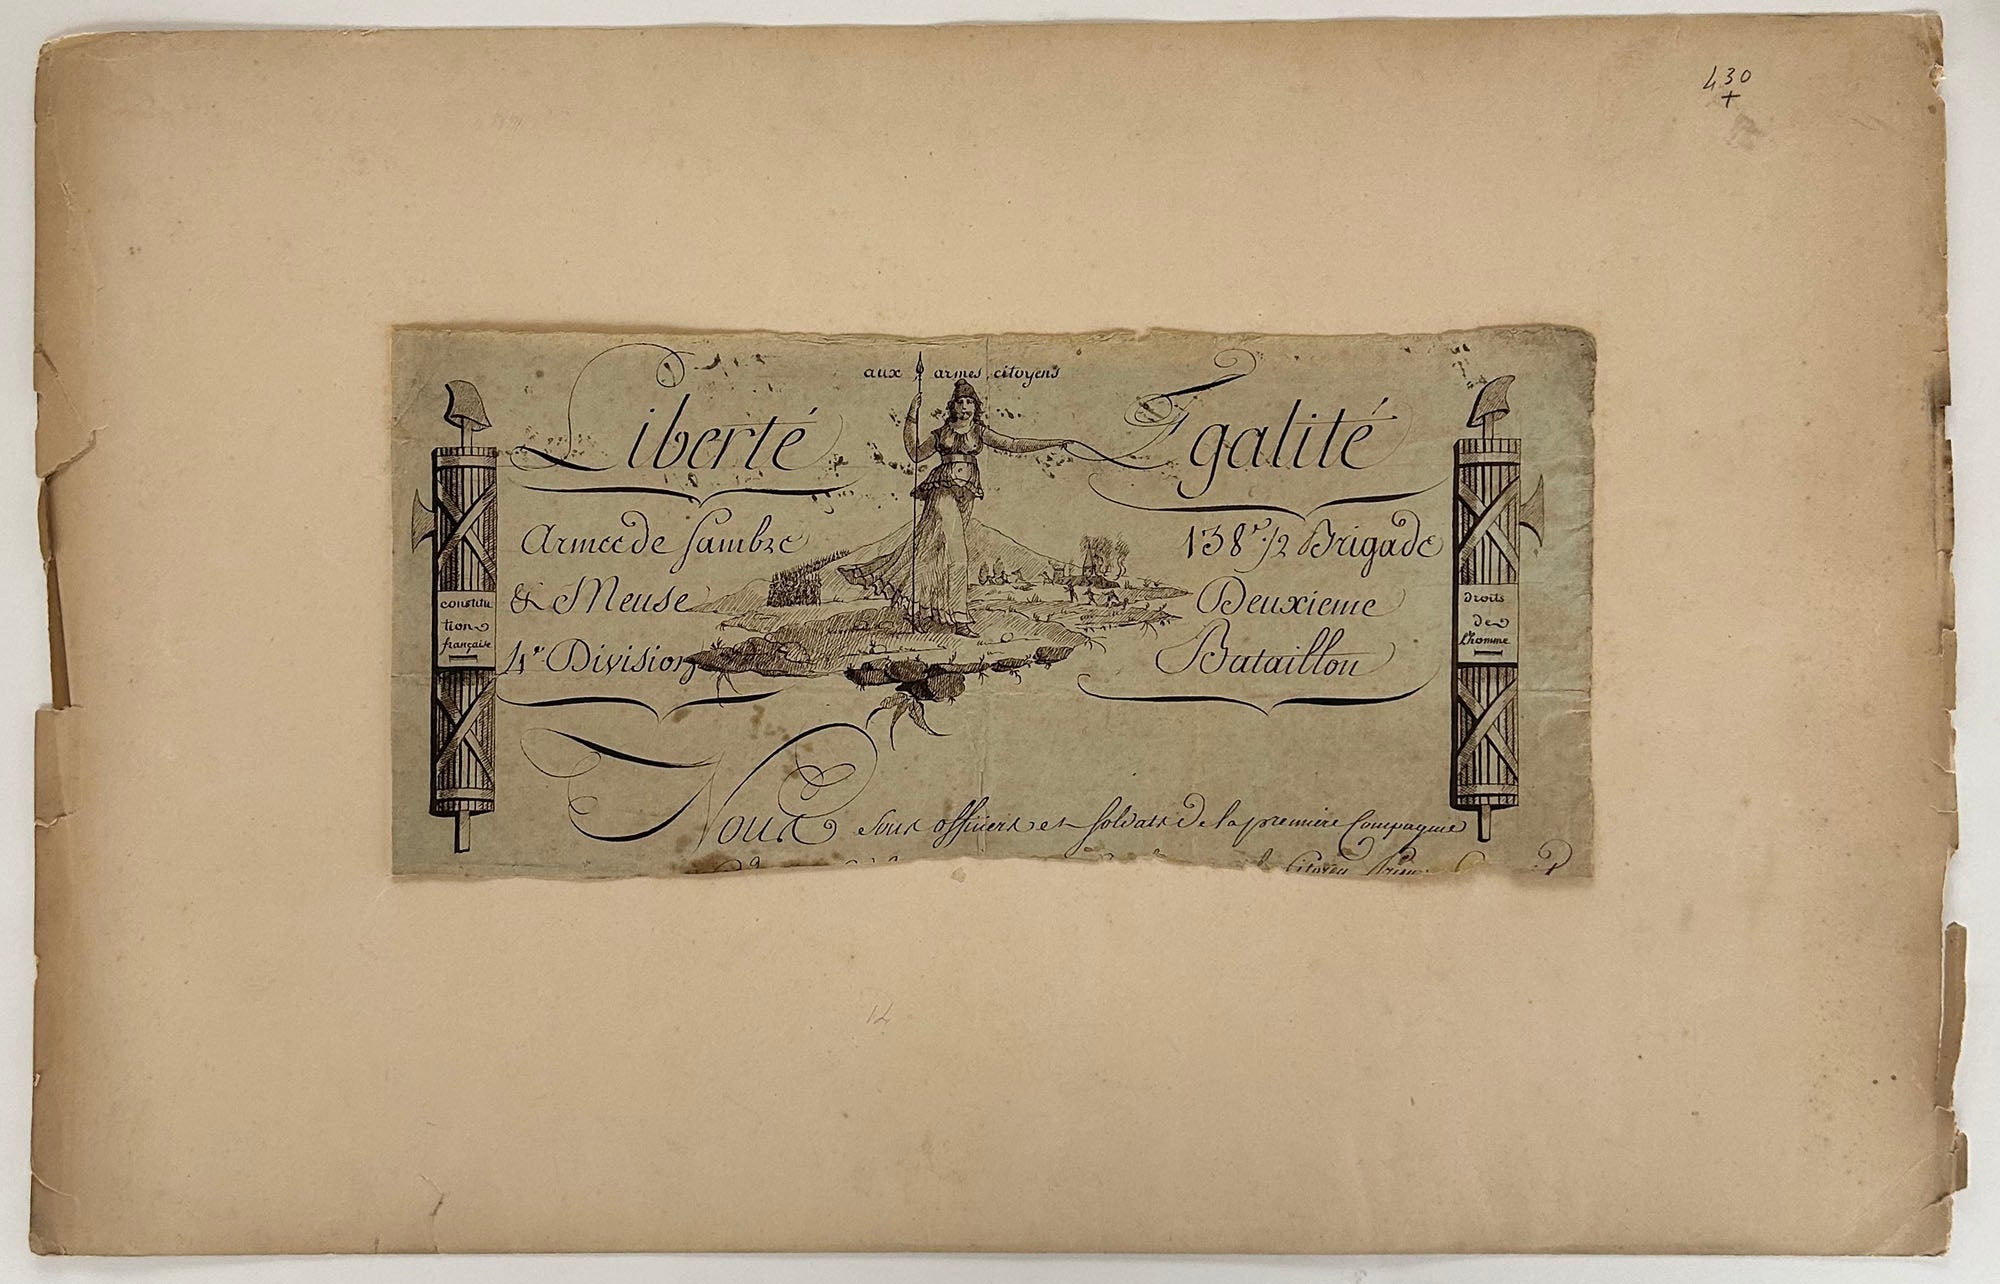 430
+
aux armes citoyens
Liberté Egalité
Armée de Sambre
& Meuse
4e Division
138e 1/2 Brigade
Deuxieme
Bataillon
constitu
tion
française
droits
de
l'homme
Nous sous officiers et soldats de la premiere Compagnie
Citoyen
12